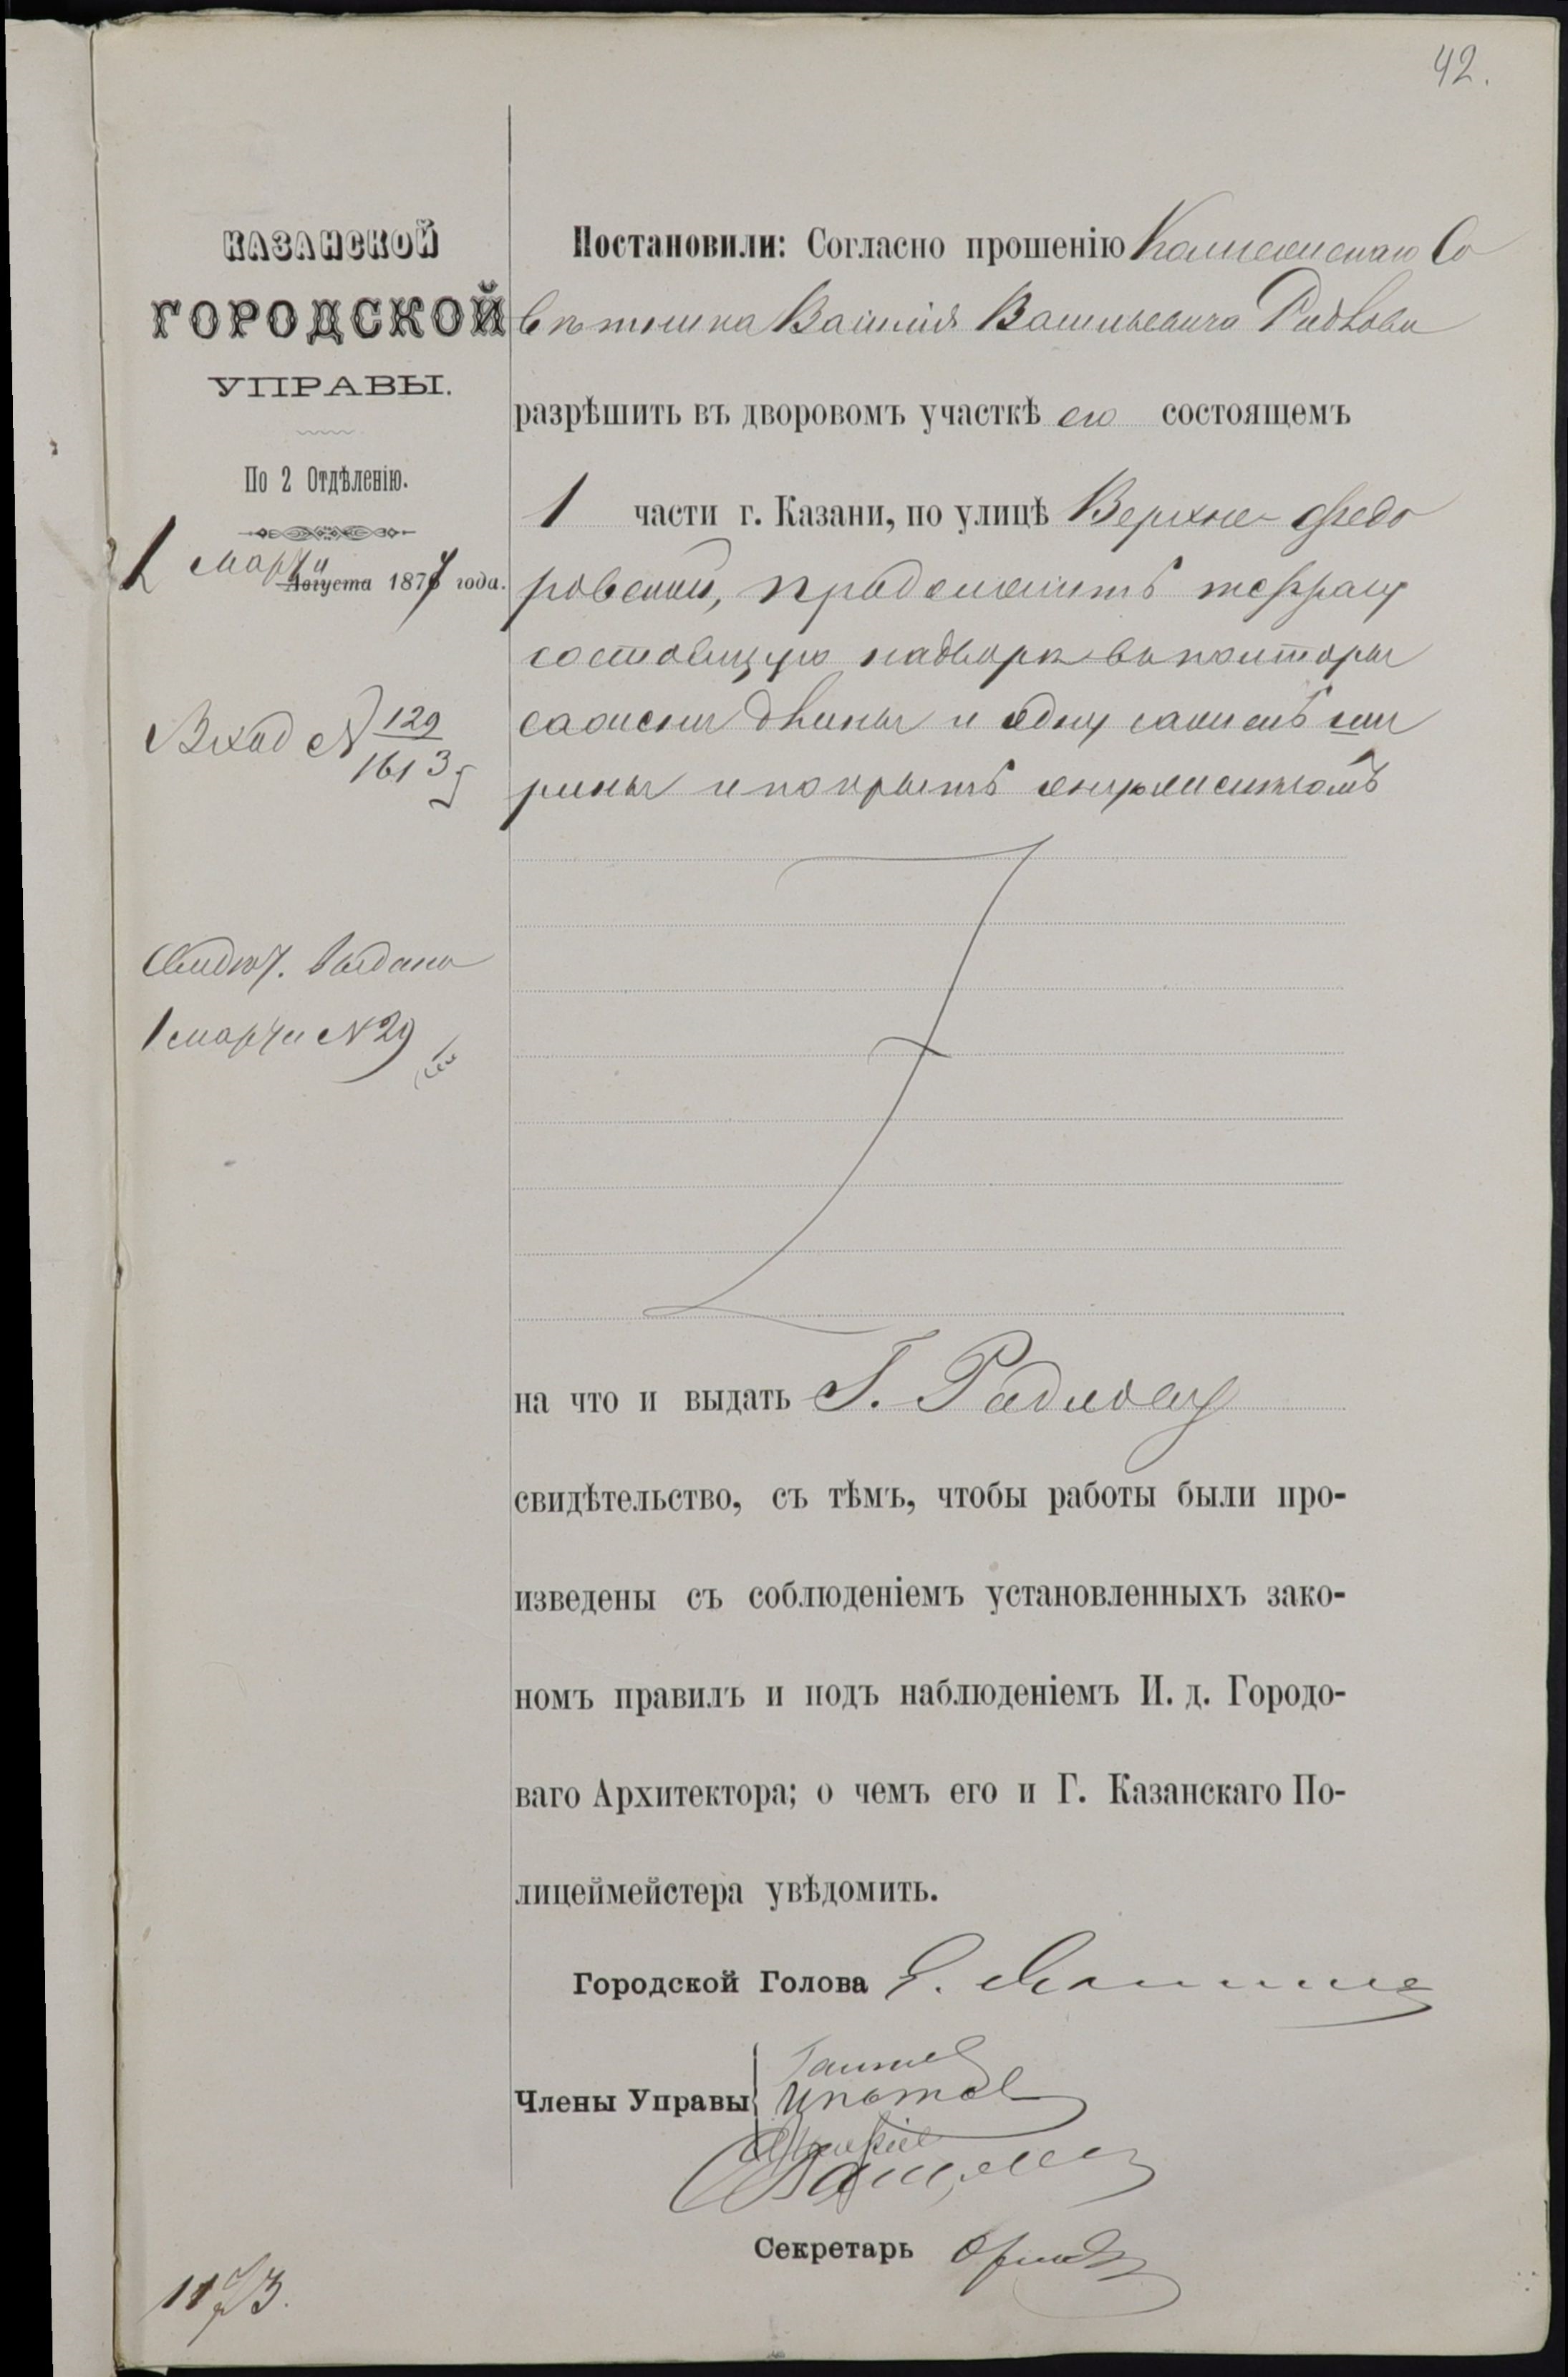 42.
КАЗАНСКОЙ
ГОРОДСКОЙ
УПРАВЫ.
По 2 Отдѣленію.
1 марта
Августа 1877 года.
Вход № 129
1613
Свидѣт. выдано
1 марта № 29
Постановили: Согласно прошенію Коллежскаго Со
вѣтника Василія Васильевича Радлова
разрѣшить въ дворовомъ участкѣ его состоящемъ
1 части г. Казани, по улицѣ Верхне-Федо
ровской, продолжить террасу
состоящую надворѣ въ полторы
сажени длины и одну сажень ши
рины и покрыть желѣзомъ
на что и выдать Г. Радлову
свидѣтельство, съ тѣмъ, чтобы работы были про-
изведены съ соблюденіемъ установленныхъ зако-
номъ правилъ и подъ наблюденіемъ И. д. Городо-
ваго Архитектора; о чемъ его и Г. Казанскаго По-
лицеймейстера увѣдомить.
Городской Голова
Члены Управы
Секретарь